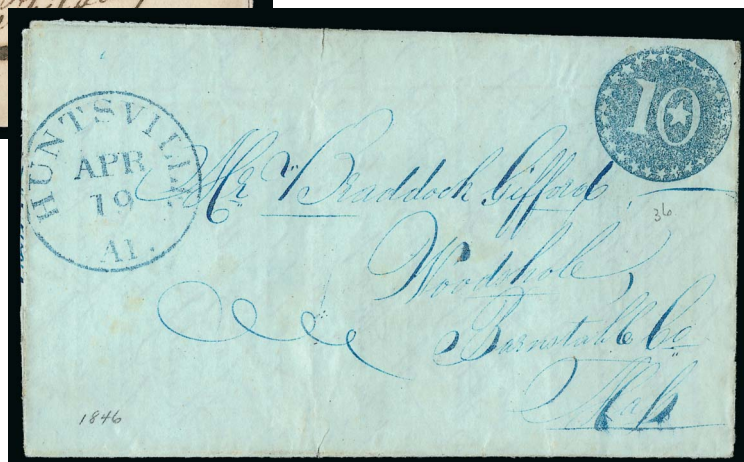 HUNTSVILLE
APR
19
Al.
10
Mr. Braddock Gifford
36
Woodshole
Barnstable Co
Mass
1846